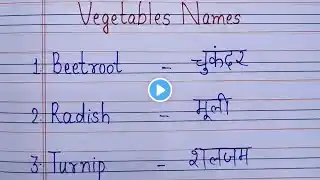 Vegetables Names
1. Beetroot - चुकंदर
2. Radish - मूली
3. Turnip - शलजम